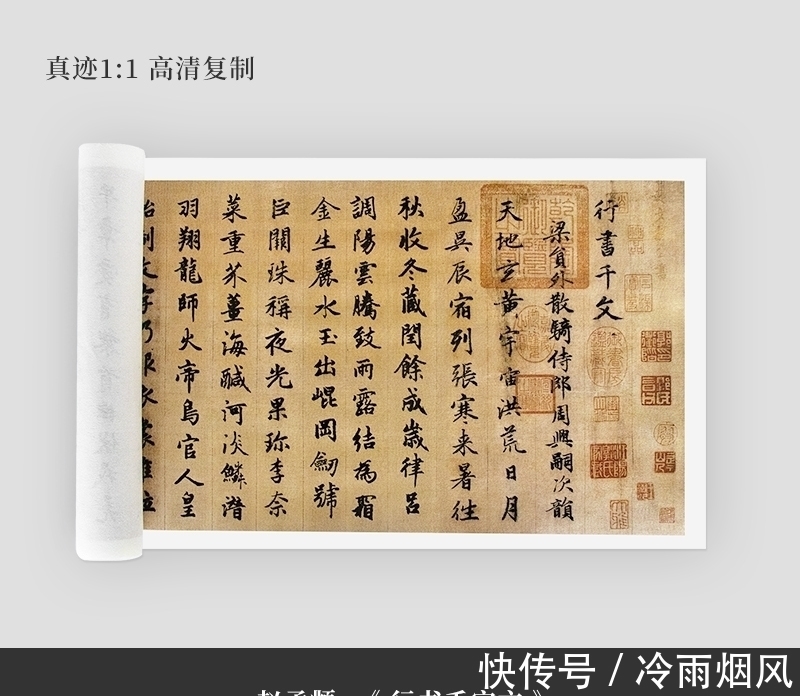 真迹1:1 高清复制
行書千文
梁貟外散騎侍郎周興嗣次韻
天地玄黃宇宙洪荒日月
盈昃辰宿列張寒来暑往
秋收冬藏閏餘成歲律呂
調陽雲騰致雨露結為霜
金生麗水玉出崐岡劒號
巨闕珠稱夜光果珍李柰
菜重芥薑海醎河淡鱗潛
羽翔龍師火帝鳥官人皇
始制文字乃服衣裳推位
快传号 / 冷雨烟风
赵孟頫 《行书千字文》